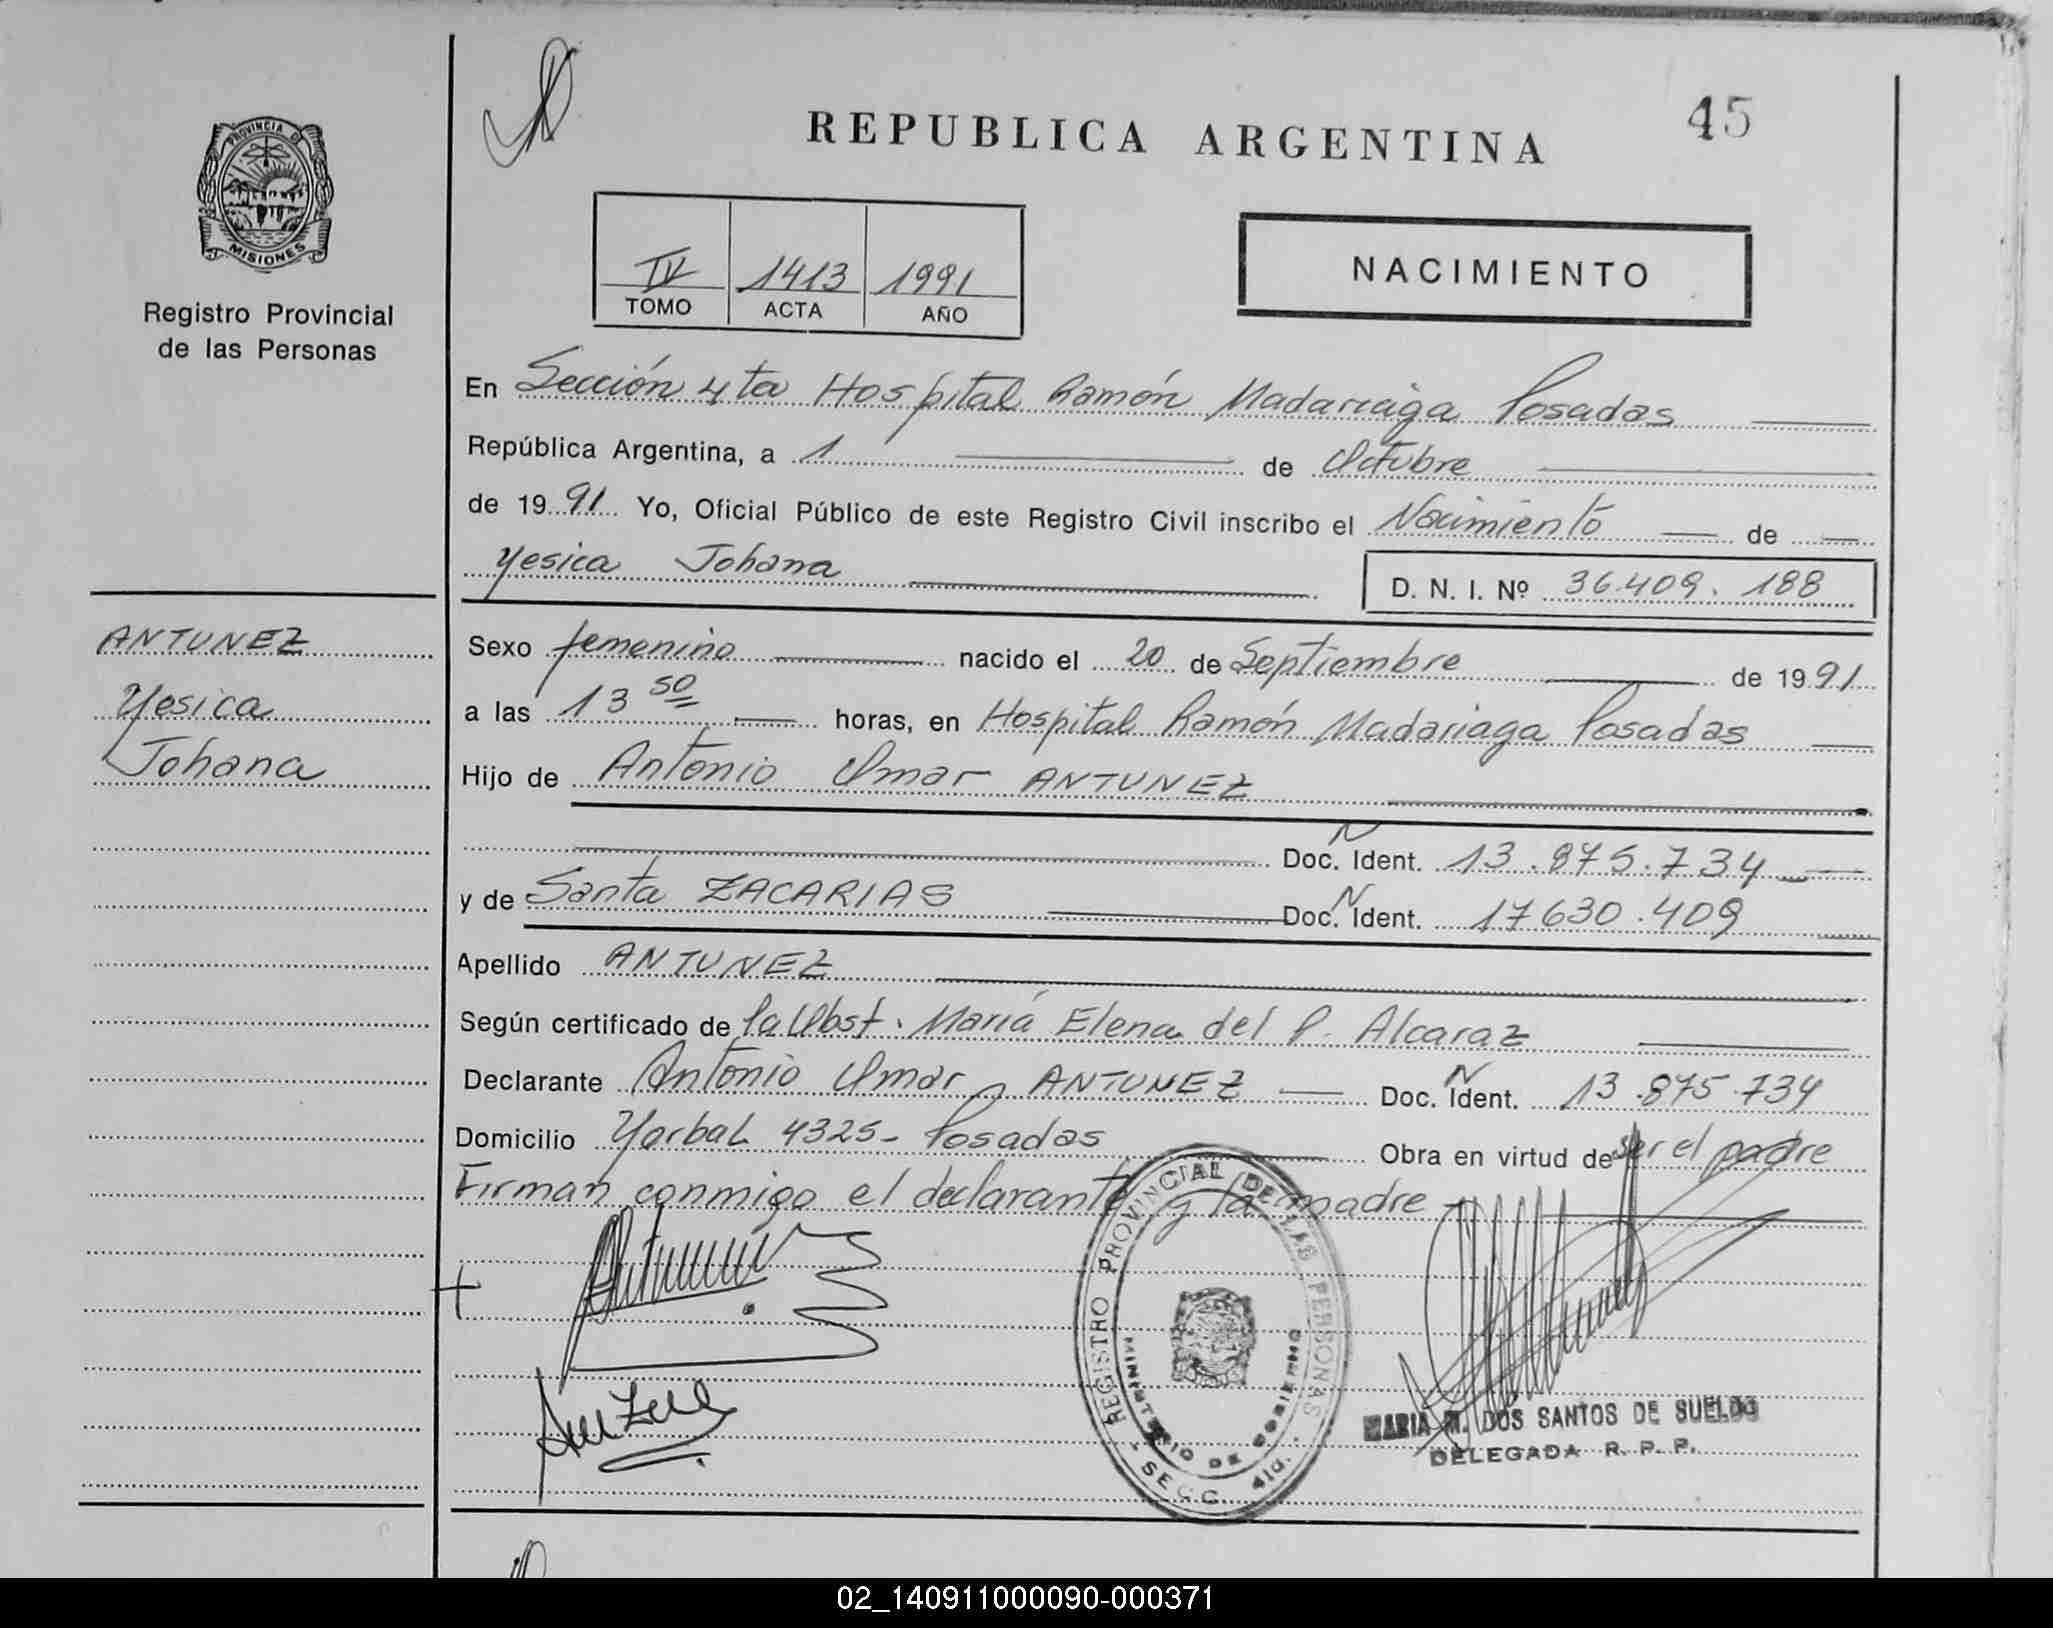 PROVINCIA DE
MISIONES
Registro Provincial
de las Personas
ANTUNEZ
Yesica
Johana
REPUBLICA ARGENTINA
45
IV 1413 1991
TOMO ACTA AÑO
NACIMIENTO
En Sección 4ta Hospital Ramón Madariaga Posadas
República Argentina, a 1 de Octubre
de 1991 Yo, Oficial Público de este Registro Civil inscribo el Nacimiento de
Yesica Johana D. N. I. Nº 36.409.188
Sexo femenino nacido el 20 de Septiembre de 1991
a las 13 50 horas, en Hospital Ramón Madariaga Posadas
Hijo de Antonio Omar ANTUNEZ
Doc. N Ident. 13.875.734
y de Santa ZACARIAS Doc. N Ident. 17630.409
Apellido ANTUNEZ
Según certificado de la Obst. María Elena del P. Alcaraz
Declarante Antonio Omar ANTUNEZ Doc. N Ident. 13.875.734
Domicilio Yerbal 4325- Posadas Obra en virtud de ser el padre
Firman conmigo el declarante y la madre
REGISTRO PROVINCIAL DE LAS PERSONAS
MINISTERIO DE GOBIERNO
- SECC. 4ta. -
MARIA M. DOS SANTOS DE SUELDO
DELEGADA R. P. P.
02_140911000090-000371